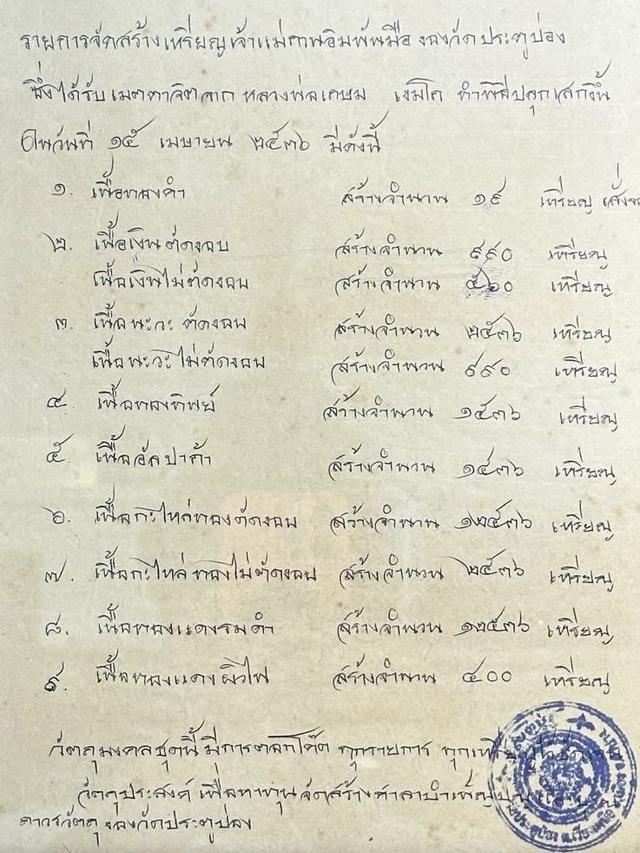 รายการจัดสร้างเหรียญเจ้าแม่กวนอิมพันมือ ของวัดประตูป่อง
ซึ่งได้รับเมตตาจิตจาก หลวงพ่อเกษม เขมโก ทำพิธีปลุกเสกขึ้น
ในวันที่ ๑๕ เมษายน ๒๕๓๖ มีดังนี้
๑. เนื้อทองคำ สร้างจำนวน ๑๙ เหรียญ
๒. เนื้อเงินตัดขอบ สร้างจำนวน ๙๙๐ เหรียญ
เนื้อเงินไม่ตัดขอบ สร้างจำนวน ๕๖๐ เหรียญ
๓. เนื้อนะวะ ตัดขอบ สร้างจำนวน ๒๕๓๖ เหรียญ
เนื้อนะวะไม่ตัดขอบ สร้างจำนวน ๙๙๐ เหรียญ
๔. เนื้อทองทิพย์ สร้างจำนวน ๑๕๓๖ เหรียญ
๕. เนื้ออัลปาก้า สร้างจำนวน ๑๕๓๖ เหรียญ
๖. เนื้อกะไหล่ทองตัดขอบ สร้างจำนวน ๑๒๕๓๖ เหรียญ
๗. เนื้อกะไหล่ทองไม่ตัดขอบ สร้างจำนวน ๒๕๓๖ เหรียญ
๘. เนื้อทองแดงรมดำ สร้างจำนวน ๑๒๕๓๖ เหรียญ
๙. เนื้อทองแดงผิวไฟ สร้างจำนวน ๔๐๐ เหรียญ
วัตถุมงคลชุดนี้ มีการตอกโค๊ต ทุกรายการ ทุกเหรียญ
วัตถุประสงค์ เพื่อหาทุนจัดสร้างศาลาบำเพ็ญ
ถาวรวัตถุของวัดประตูป่อง